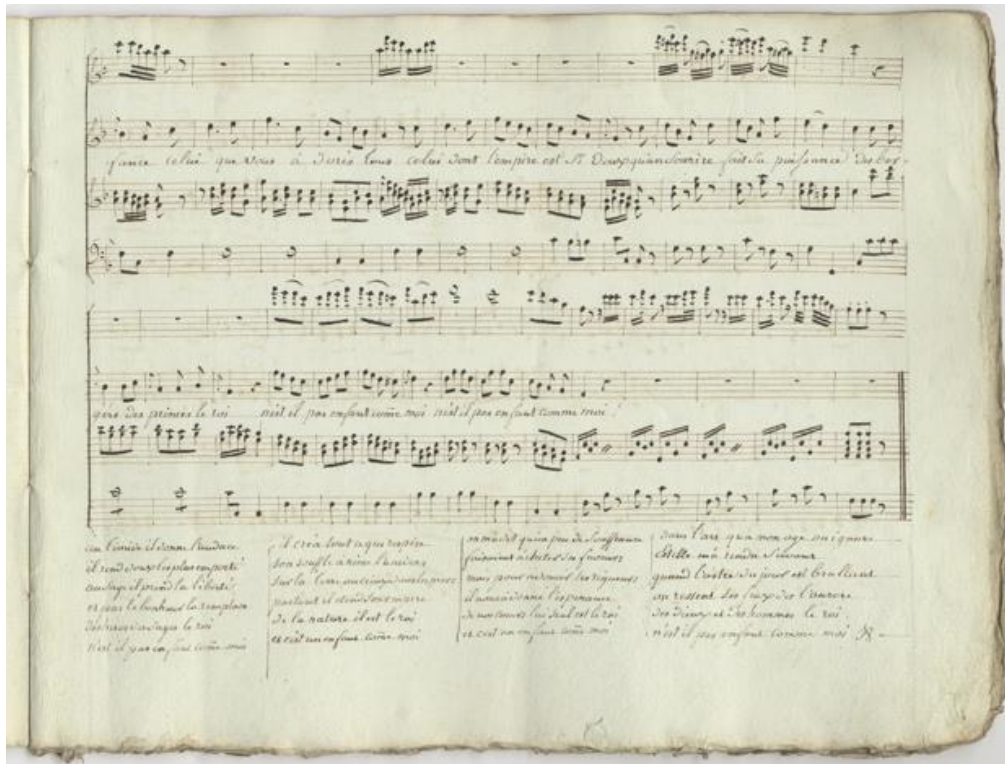 fance celui que vous a dorés tous celui dont l'empire est si doux qu'un sourire fait sa puissance des ber-
gers des princes le roi n'est il pas enfant come moi n'est il pas enfant comme moi
au timide il donne l'audace
il rend doux le plus emporté
au sage il prend la liberté
et par le bonheur la remplace
le roi
n'est il pas enfant come moi
il créa tout ce qui respire
son souffle anime l'univers
sur la terre
partout il etend son empire
de la nature il est le roi
et c'est un enfant come moi
on m'a dit qu'un peu de souffrance
faveurs
mais pour adoucir ses rigueurs
l'esperance
de nos coeurs lui seul est le roi
et c'est un enfant come moi
dans l'art qu'a mon age on ignore
m'a rendu savant
quand l'astre du jour est brullant
on ressent les feux des l'aurore
des dieux et des hommes le roi
n'est il pas enfant comme moi